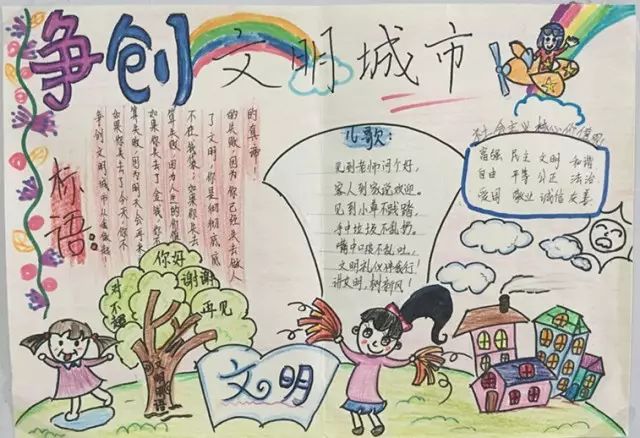 争创文明城市
标语
争创文明城市从我做起!
如果你失去了今天,你不
算失败因为明天会再来
如果你失去了金钱,你不
算失败因为人生的价值
不在钱袋;如果你失去
了文明,你是彻彻底底
的失败因为你已经失去做
的真谛!
儿歌:
见到老师问个好,
客人到家说欢迎。
见到小草不践踏,
手中垃圾不乱扔。
嘴中口痰不乱吐,
文明礼仪伴我行!
讲文明,树新风!
社会主义核心价值观
富强 民主 文明 和谐
自由 平等 公正 法治
爱国 敬业 诚信 友善
你好
谢谢
对不起
再见
文明用语
文明